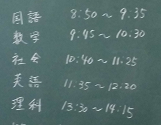 国語 8:50～9:35
数学 9:45～10:30
社会 10:40～11:25
英語 11:35～12:20
理科 13:30～14:15